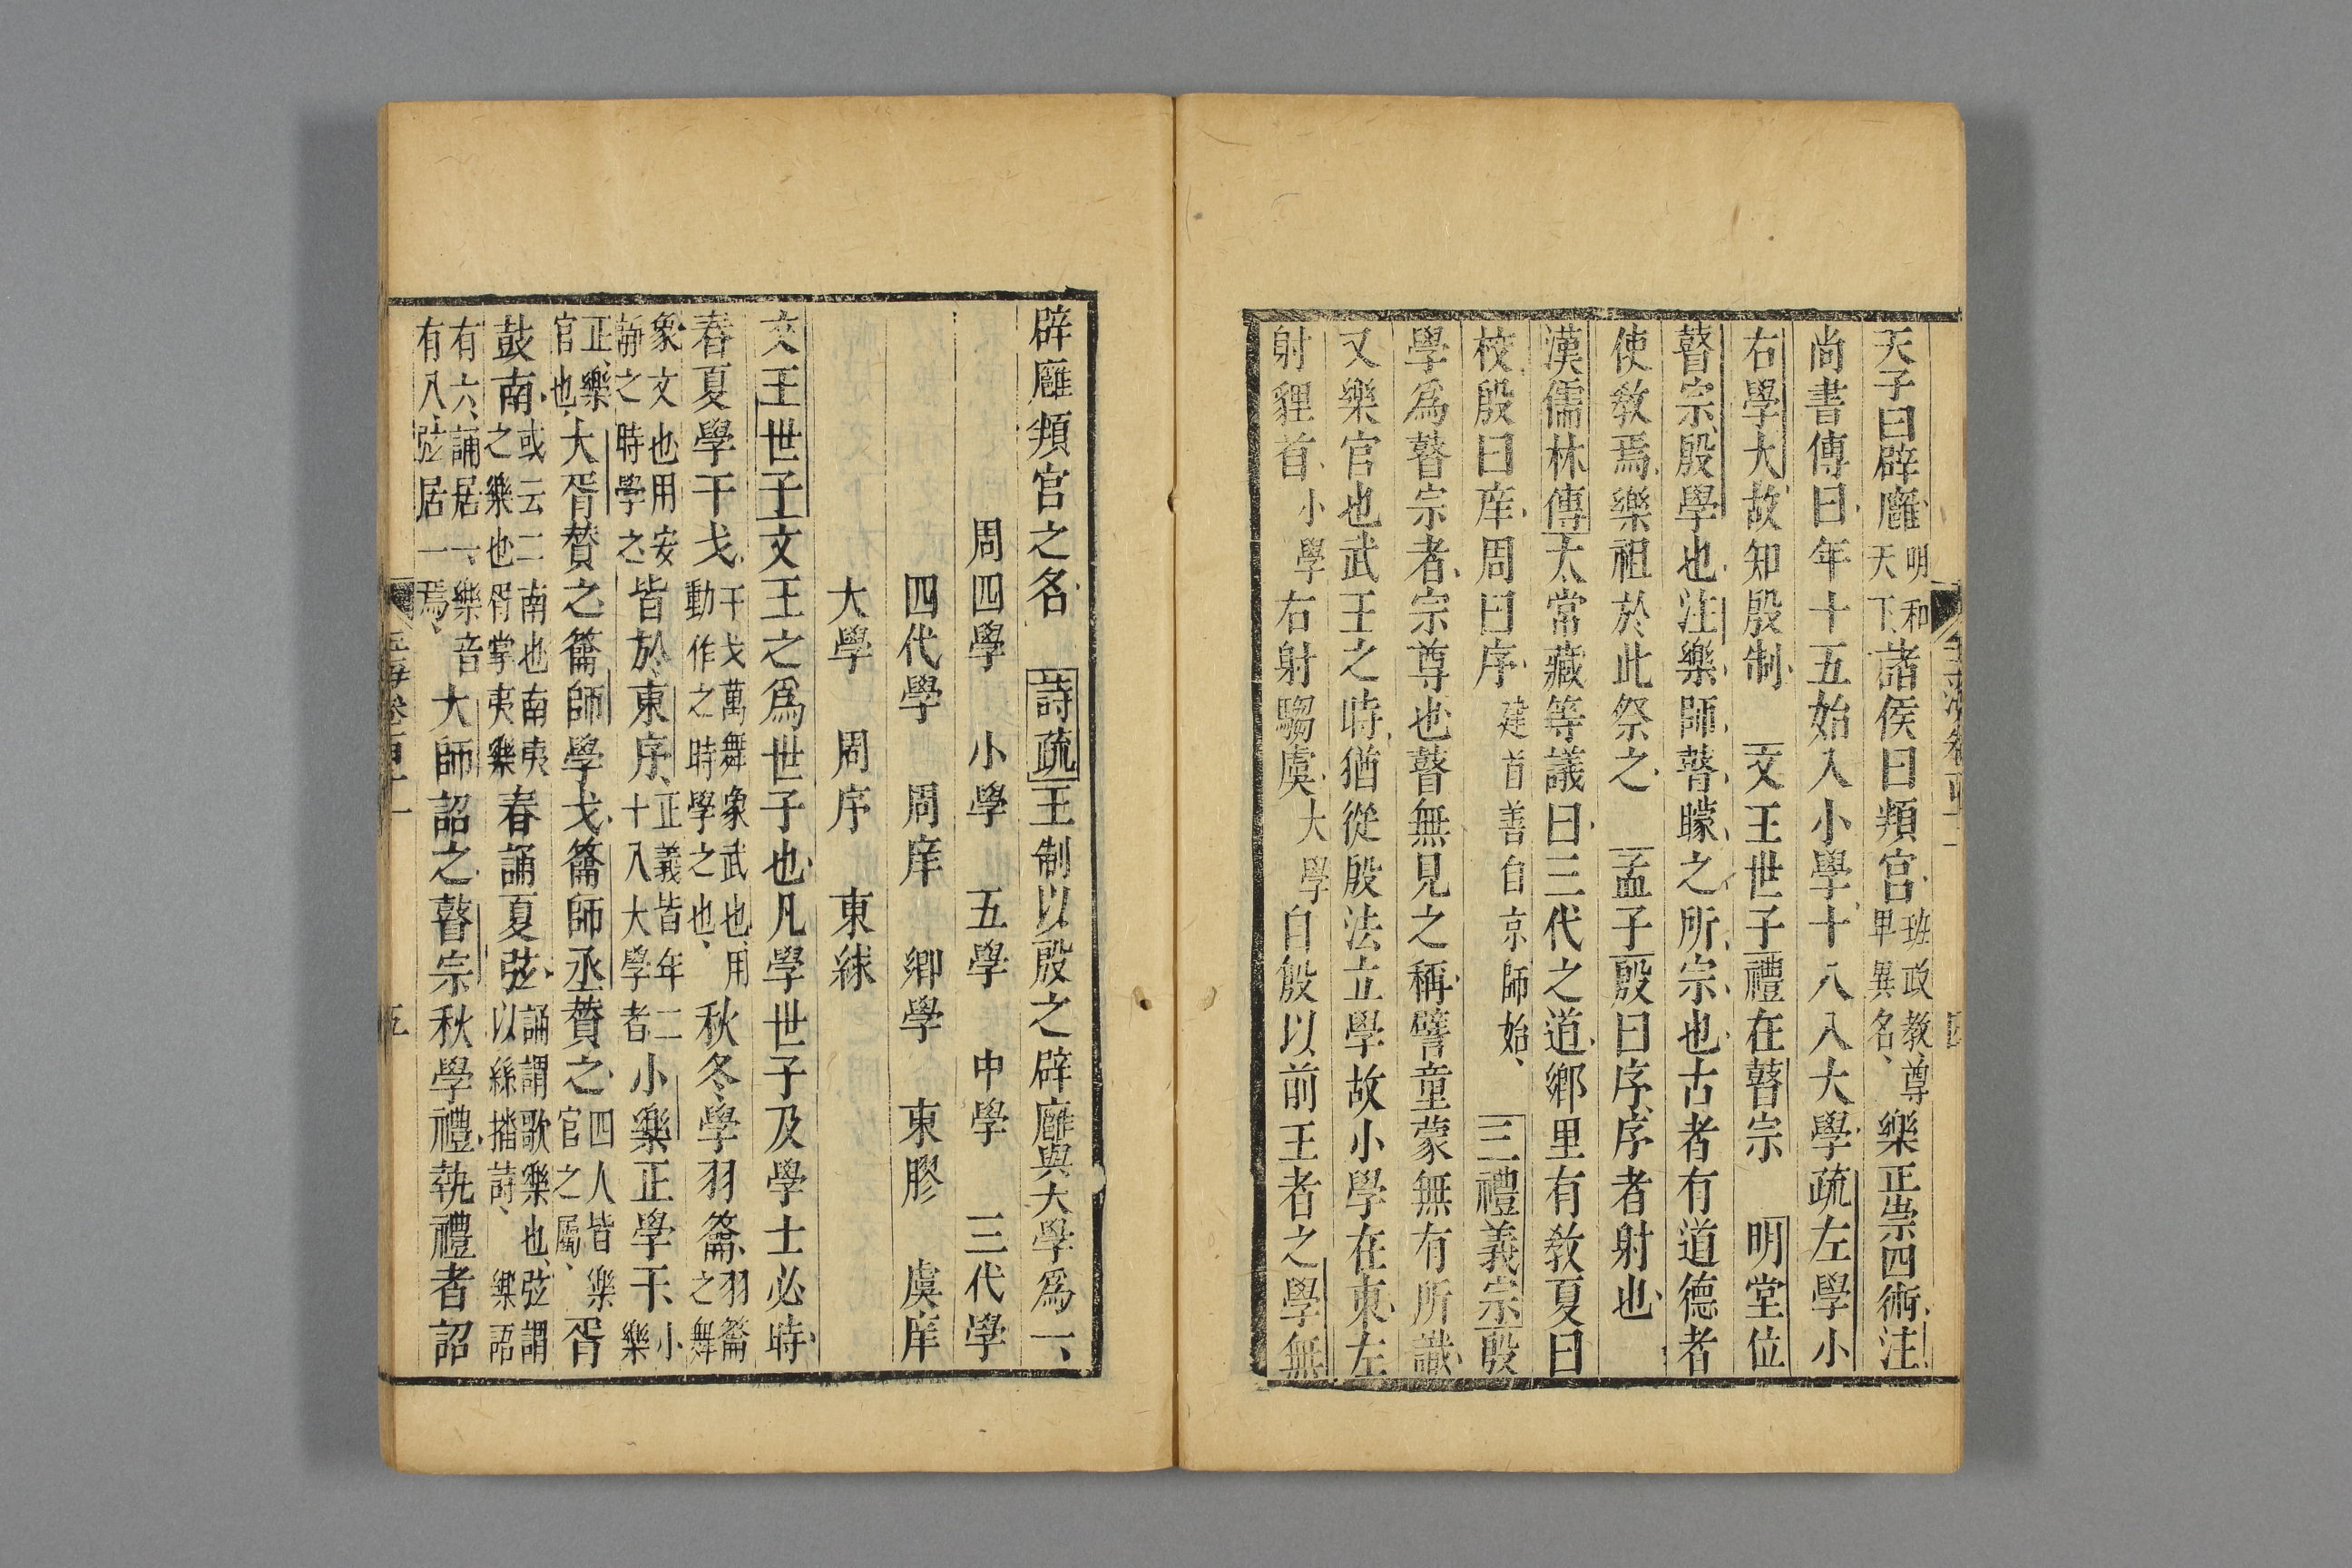 天子曰辟廱明和天下諸侯曰頖宮班政教尊卑異名樂正崇四術注
尚書傳曰年十五始入小學十八入大學疏左學小
右學大故知殷制 文王世子禮在瞽宗 明堂位
瞽宗殷學也注樂師瞽矇之所宗也古者有道德者
使教焉樂祖於此祭之 孟子殷曰序序者射也
漢儒林傳太常藏等議曰三代之道鄉里有教夏曰
校殷曰庠周曰序建首善自京師始 三禮義宗殷
學爲瞽宗者宗尊也瞽無見之稱譬童蒙無有所識
又樂官也武王之時猶從殷法立學故小學在東左
射貍首小學右射騶虞大學自殷以前王者之學無
辟廱頖宮之名 詩疏王制以殷之辟廱與大學爲一
周四學 小學 五學 中學 三代學
四代學 周庠 鄉學 東膠 虞庠
大學 周序 東綀
文王世子文王之爲世子也凡學世子及學士必時
春夏學干戈干戈萬舞象武也用動作之時學之也秋冬學羽籥羽籥之舞
象文也用安靜之時學之皆於東序正義皆年二十入大學者小樂正學干小樂
正樂官也大胥贊之籥師學戈籥師丞贊之四人皆樂官之屬胥
鼓南或云二南也南夷之樂也胥掌夷樂春誦夏弦誦謂歌樂也弦謂以絲播詩樂語
有六誦居一樂音有八弦居一焉大師詔之瞽宗秋學禮執禮者詔